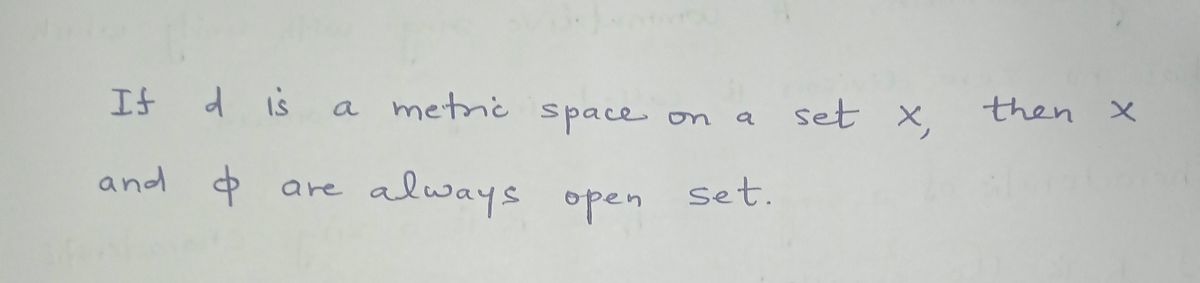 If d is a metric space on a set X, then X
and ϕ are always open set.